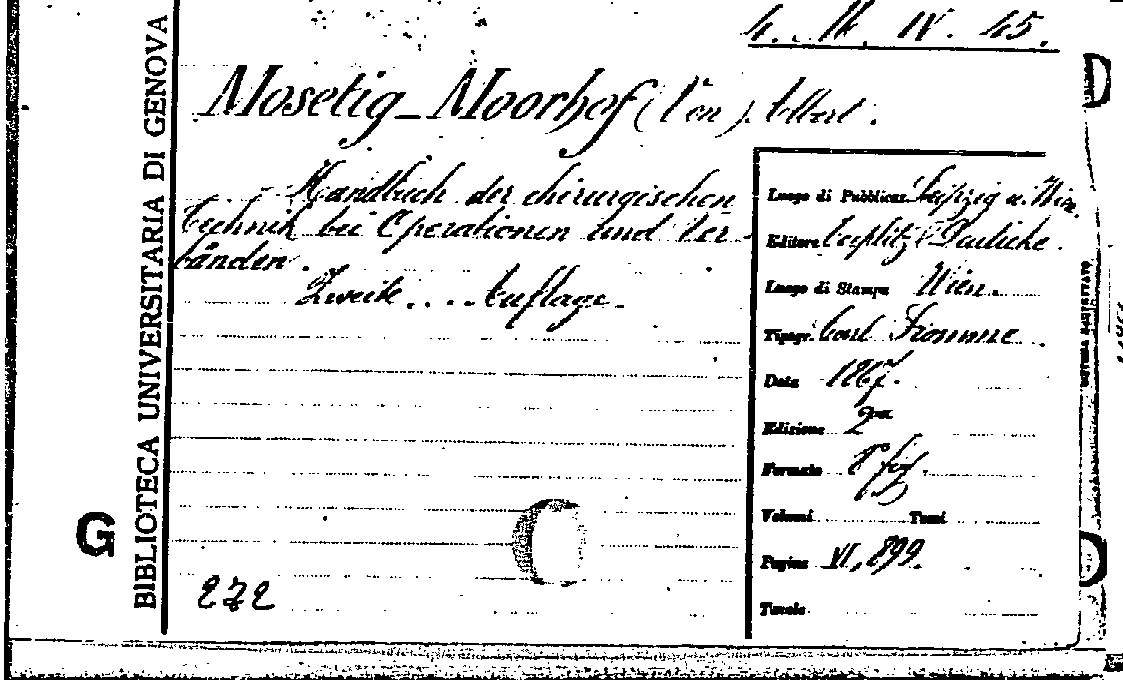 4. M. IV. 45.
Mosetig-Moorhof (Von) Albert.
Handbuch der chirurgischen
Technik bei Operationen und Ver-
bänden.
Zweite.... Auflage.
BIBLIOTECA UNIVERSITARIA DI GENOVA
G
272
Luogo di Pubblicaz. Leipzig u. Wien.
Editore & Deuticke.
Luogo di Stampa Wien.
Tipogr. Carl Fromme.
Data
Edizione 2ª
Formato 8° fig.
Volumi Tomi
Pagine VI, 899.
Tavole